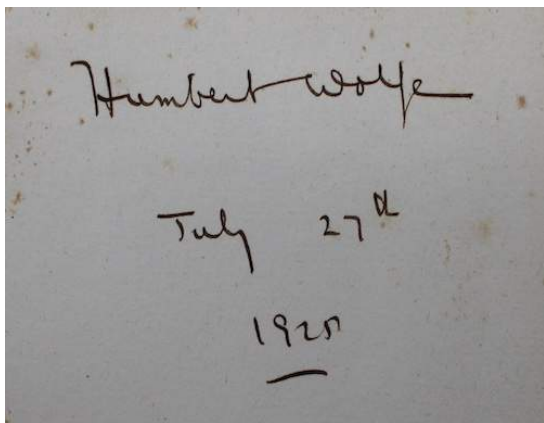 Humbert Wolfe
July 27th
1925